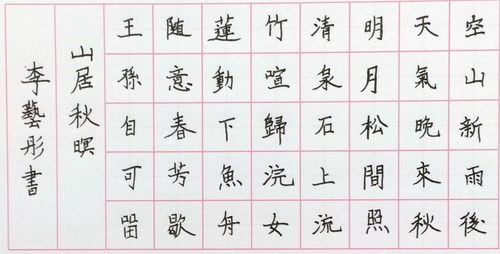 空山新雨後
天氣晚來秋
明月松間照
清泉石上流
竹喧歸浣女
蓮動下魚舟
随意春芳歇
王孫自可留
山居秋暝
李藝彤書